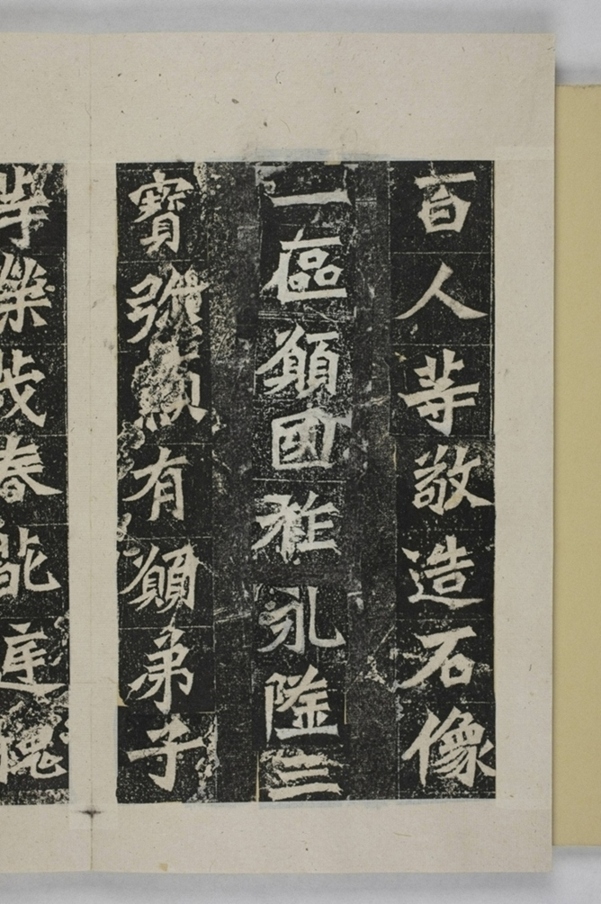 百人等敬造石像
一區願國祚永隆三
寶彌顯有願弟子
等榮茂春葩庭槐